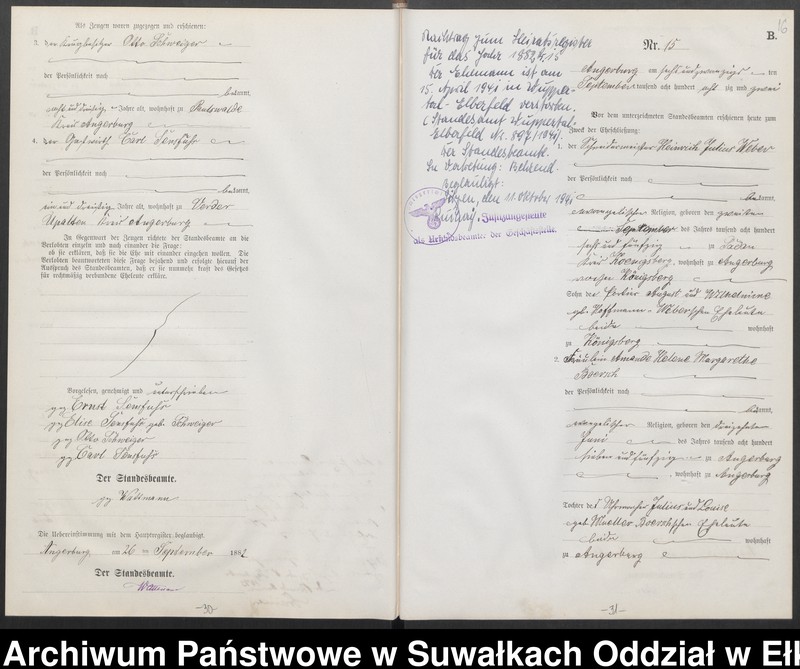 Als Zeugen waren zugezogen und erschienen:
3. der Krugbesitzer Otto Schweiger
der Persönlichkeit nach
kannt,
acht und dreißig Jahre alt, wohnhaft zu
Kreis Angerburg
4. der Gastwirth Carl Senfuhs
der Persönlichkeit nach
kannt,
ein und dreißig Jahre alt, wohnhaft zu
Kreis Angerburg
In Gegenwart der Zeugen richtete der Standesbeamte an die
Verlobten einzeln und nach einander die Frage:
ob sie erklären, daß sie die Ehe mit einander eingehen wollen. Die
Verlobten beantworteten diese Frage bejahend und erfolgte hierauf der
Ausspruch des Standesbeamten, daß er sie nunmehr kraft des Gesetzes
für rechtmäßig verbundene Eheleute erkläre.
Vorgelesen, genehmigt und unterschrieben
gz Ernst Senfuhs
gz Elise Senfuhs geb. Schweiger
gz Otto Schweiger
gz Carl Senfuhs
Der Standesbeamte.
gz
Die Uebereinstimmung mit dem Hauptregister beglaubigt.
Angerburg am 26 ten September 1882
Der Standesbeamte.
-30-
Nachtrag zum Heiratsregister
für das Jahr
Der Ehemann ist am
15. April 1941 in Wupper-
tal-Elberfeld verstorben.
(Standesamt Wuppertal-
Elberfeld Nr. 897/1941).
Der Standesbeamte.
In Vertretung: Behrend.
Beglaubigt:
Lötzen, den 11. Oktober 1941
Justizangestellte
als Urkundsbeamter der Geschäftsstelle.
B.
Nr. 15
Angerburg am sechs und zwanzigsten
September tausend acht hundert acht zig und zwei
Vor dem unterzeichneten Standesbeamten erschienen heute zum
Zweck der Eheschließung:
1. der Heinrich Julius Weber
der Persönlichkeit nach
kannt,
evangelischer Religion, geboren den zweiten
September des Jahres tausend acht hundert
sechs und fünfzig zu
Kreis Koenigsberg, wohnhaft zu Angerburg
vorher Königsberg
Sohn der Portier August und Wilhelmine
geb. Hoffmann-Weberschen Eheleute
beide wohnhaft
zu Königsberg
2. Fräulein Amande Helene Margarethe
Boersch
der Persönlichkeit nach
kannt,
evangelischer Religion, geboren den dreizehnten
Juni des Jahres tausend acht hundert
sieben und fünfzig zu Angerburg
, wohnhaft zu Angerburg
Tochter des Uhrmacher Julius und Louise
geb. Mueller Boerschschen Eheleute
beide wohnhaft
zu Angerburg
-31-
Archiwum Państwowe w Suwałkach Oddział w Eł